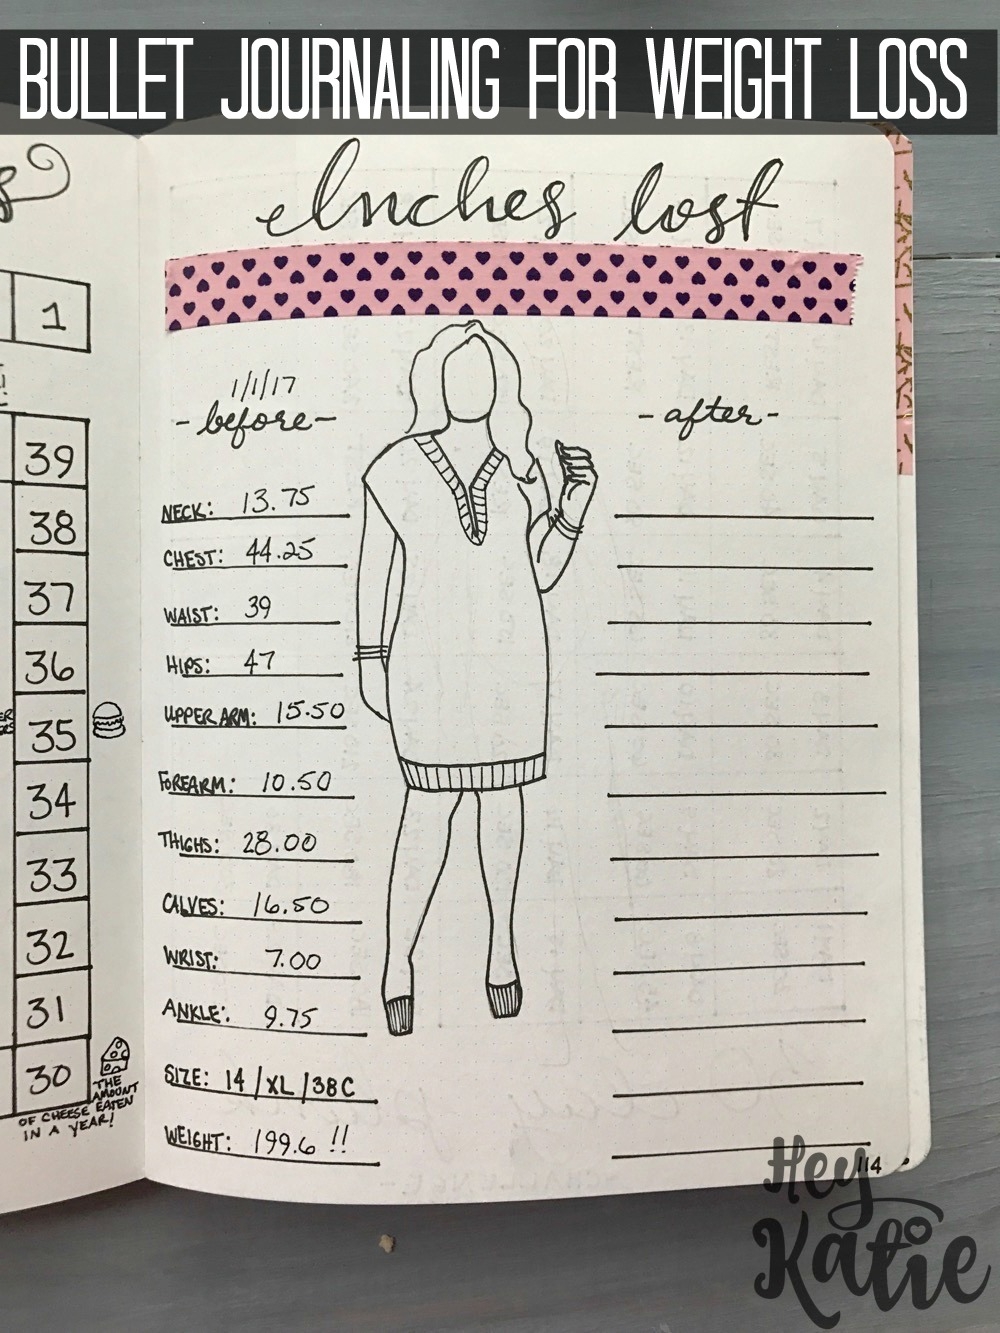 BULLET JOURNALING FOR WEIGHT LOSS
Inches lost
1
39
38
37
36
35
34
33
32
31
30
THE
AMOUNT
OF CHEESE EATEN
IN A YEAR!
1/1/17
-before-
-after-
NECK: 13.75
CHEST: 44.25
WAIST: 39
HIPS: 47
UPPER ARM: 15.50
FOREARM: 10.50
THIGHS: 28.00
CALVES: 16.50
WRIST: 7.00
ANKLE: 9.75
SIZE: 14/XL/38C
WEIGHT: 199.6 !!
114
Hey
Katie